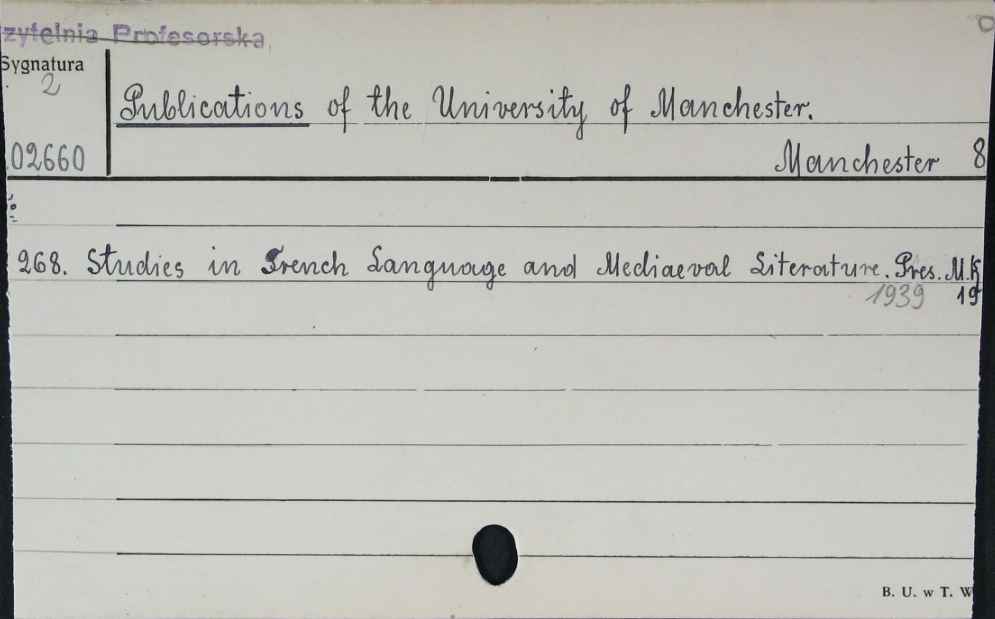 zytelnia Profesorska
Sygnatura
2
Publications of the University of Manchester.
02660
Manchester 8
268. Studies in French Language and Mediaeval Literature. Pres. M.K
1939 19
B. U. w T. W